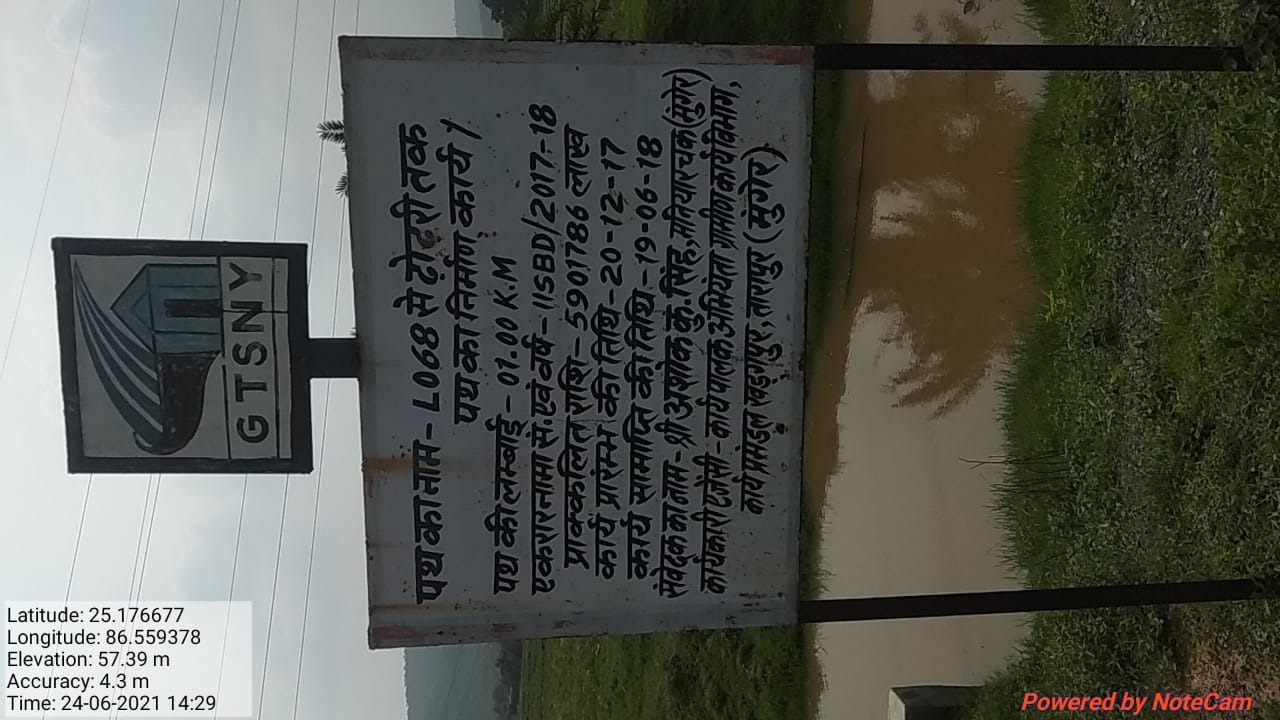 GTSNY
पथ का नाम - L068 से टोटरी तक
पथ का निर्माण कार्य ।
पथ की लम्बाई - 01.00 K.M
एकरारनामा सं. एवं वर्ष - 11SBD/2017-18
प्राक्कलित राशि - 5901786 लाख
कार्य प्रारंम्भ की तिथि - 20-12-17
कार्य सामाप्ति की तिथि - 19-06-18
संवेदक का नाम - श्री अशोक कु. सिंह, (मुंगेर)
कार्यकारी एजेंसी - कार्यपालक अभियंता ग्रामीण कार्य विभाग,
कार्य प्रमंडल खड़गपुर, तारापुर (मुंगेर)
Latitude: 25.176677
Longitude: 86.559378
Elevation: 57.39 m
Accuracy: 4.3 m
Time: 24-06-2021 14:29
Powered by NoteCam